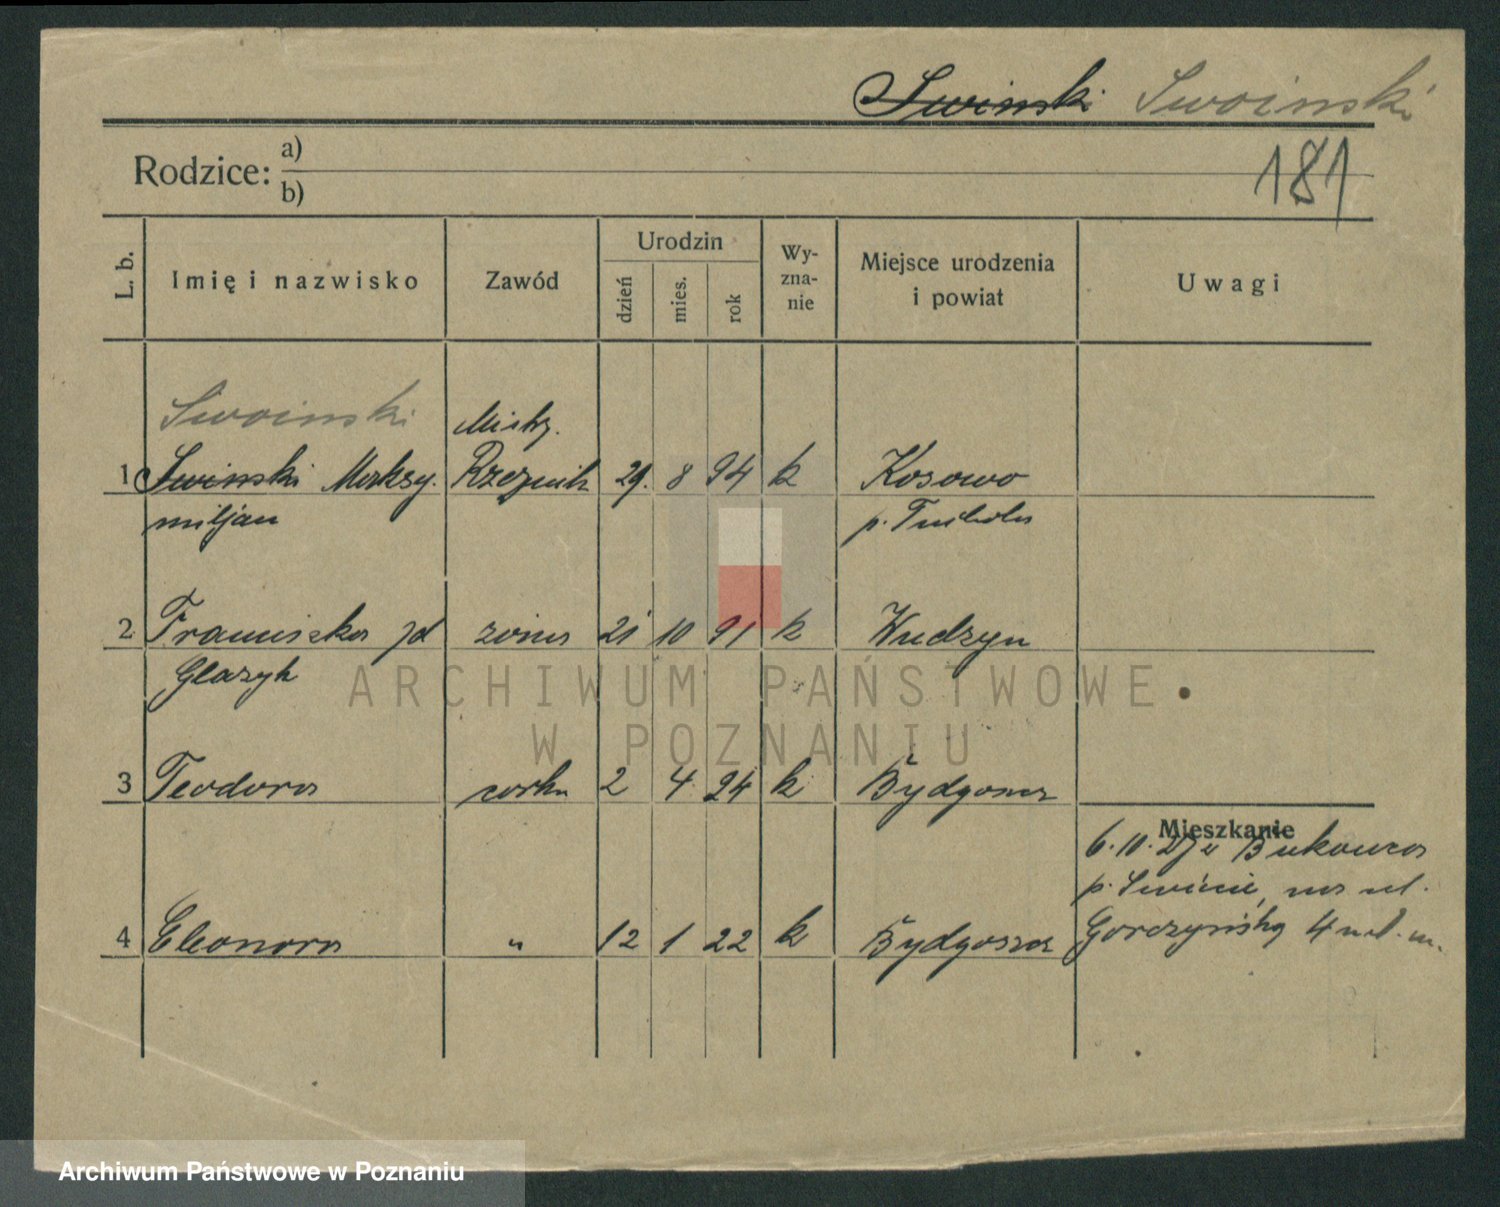 Swinski Swoinski
181
Rodzice: a)
b)
L. b. Imię i nazwisko Zawód Urodzin dzień mies. rok Wy-zna-nie Miejsce urodzenia i powiat Uwagi
Swoinski Mistrz.
1 Swinski Maksy. Rzeźnik 29. 8 94 k Kosowo
miljan p. Tuchola
2 Franciszka zd żona 21 10 91 k Wudzyn
Glazyk
ARCHIWUM PAŃSTWOWE
W POZNANIU
3 Teodora corka 2 4 24 k Bydgoszcz
Mieszkanie
6. 10. 27 z Bukowca
p. Swiecie, na ul.
4 Eleonora " 12 1 22 k Bydgoszcz Gorczyńską 4
Archiwum Państwowe w Poznaniu